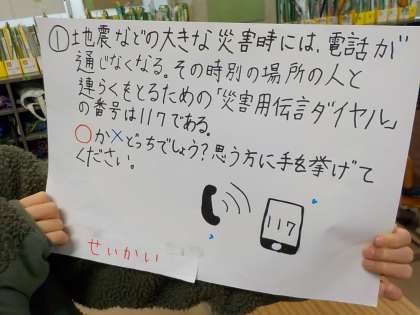 ①地震などの大きな災害時には、電話が
通じなくなる。その時別の場所の人と
連らくをとるための「災害用伝言ダイヤル」
の番号は117である。
○か×どっちでしょう?思う方に手を挙げて
ください。
117
せいかい